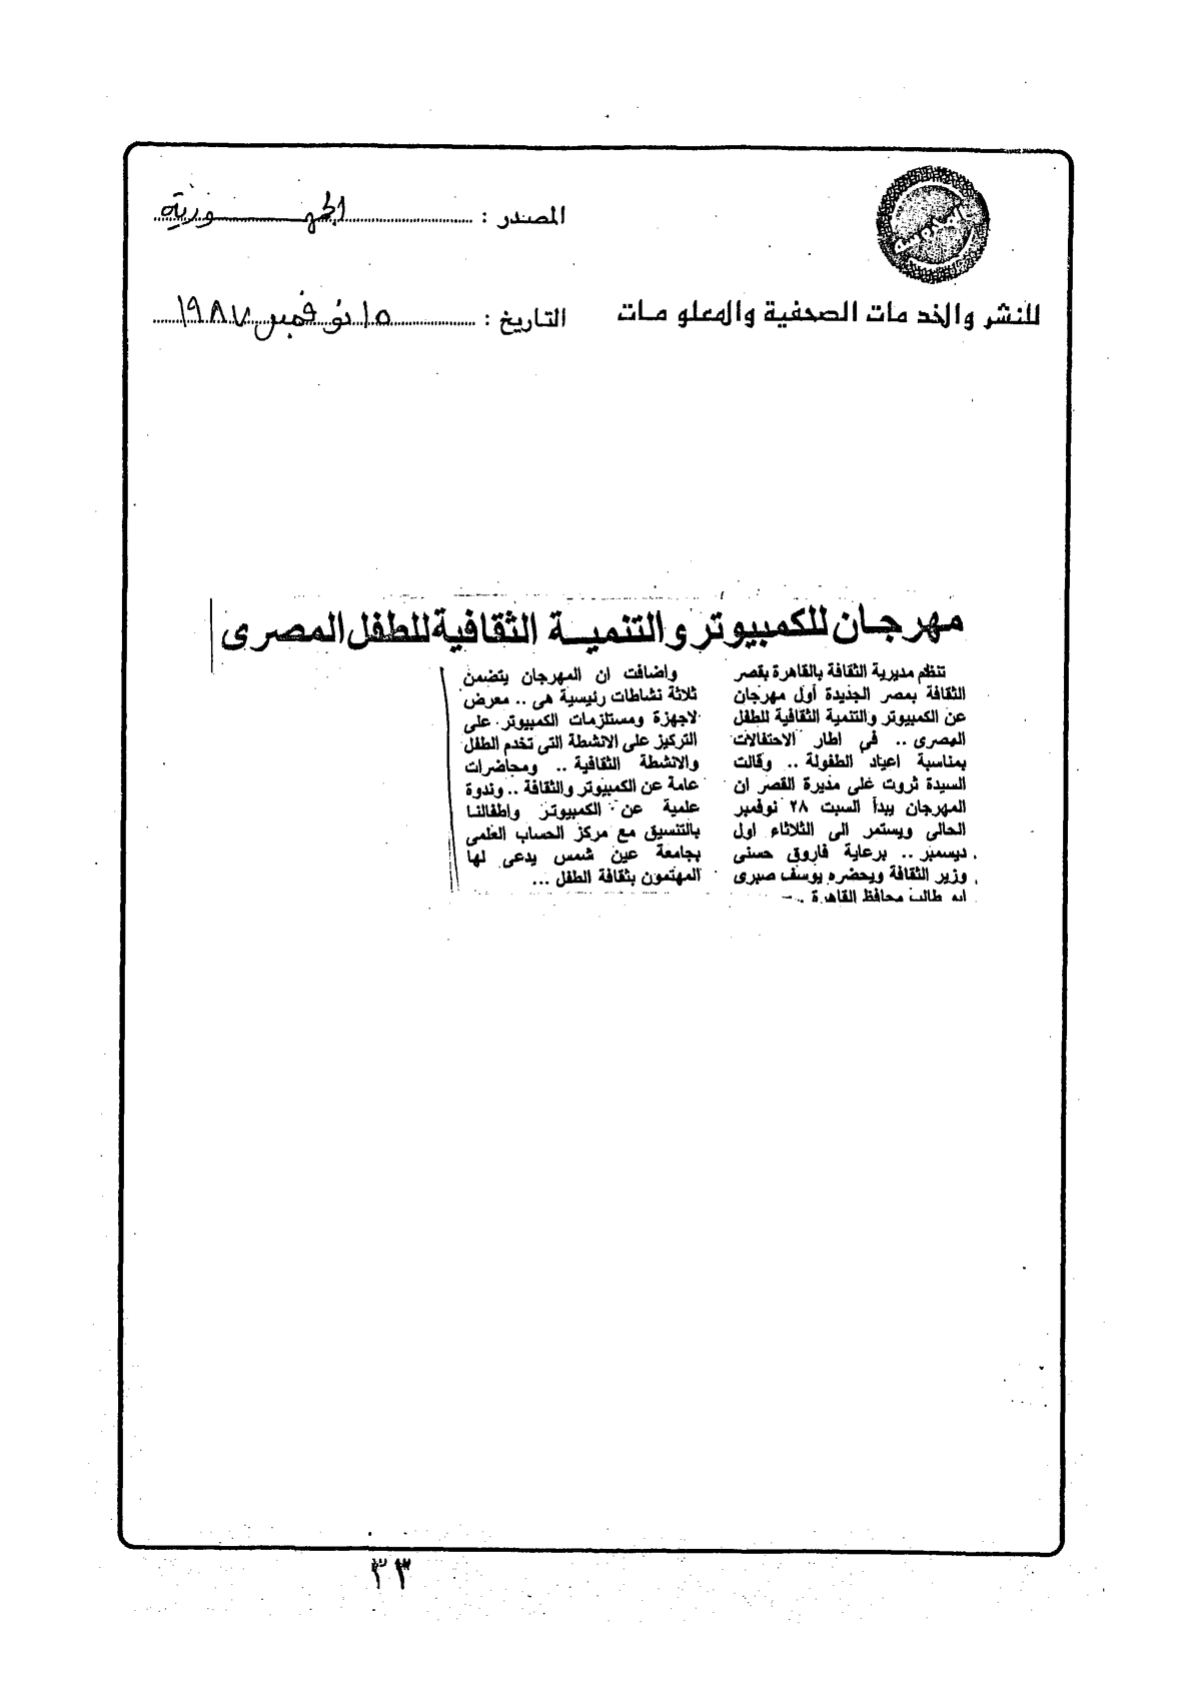 المصدر : الجمهورية
للنشر والخدمات الصحفية والمعلومات
التاريخ : ١٥ نوفمبر ١٩٨٧
مهرجان للكمبيوتر والتنمية الثقافية للطفل المصرى
تنظم مديرية الثقافة بالقاهرة بقصر
الثقافة بمصر الجديدة أول مهرجان
عن الكمبيوتر والتنمية الثقافية للطفل
المصرى .. فى اطار الاحتفالات
بمناسبة اعياد الطفولة .. وقالت
السيدة ثروت على مديرة القصر ان
المهرجان يبدأ السبت ٢٨ نوفمبر
الحالى ويستمر الى الثلاثاء اول
ديسمبر .. برعاية فاروق حسنى
وزير الثقافة ويحضره يوسف صبرى
ابو طالب محافظ القاهرة ..
واضافت ان المهرجان يتضمن
ثلاثة نشاطات رئيسية هى .. معرض
لاجهزة ومستلزمات الكمبيوتر على
التركيز على الانشطة التى تخدم الطفل
والانشطة الثقافية .. ومحاضرات
عامة عن الكمبيوتر والثقافة .. وندوة
علمية عن الكمبيوتر واطفالنا
بالتنسيق مع مركز الحساب العلمى
بجامعة عين شمس يدعى لها
المهتمون بثقافة الطفل ...
٣٣